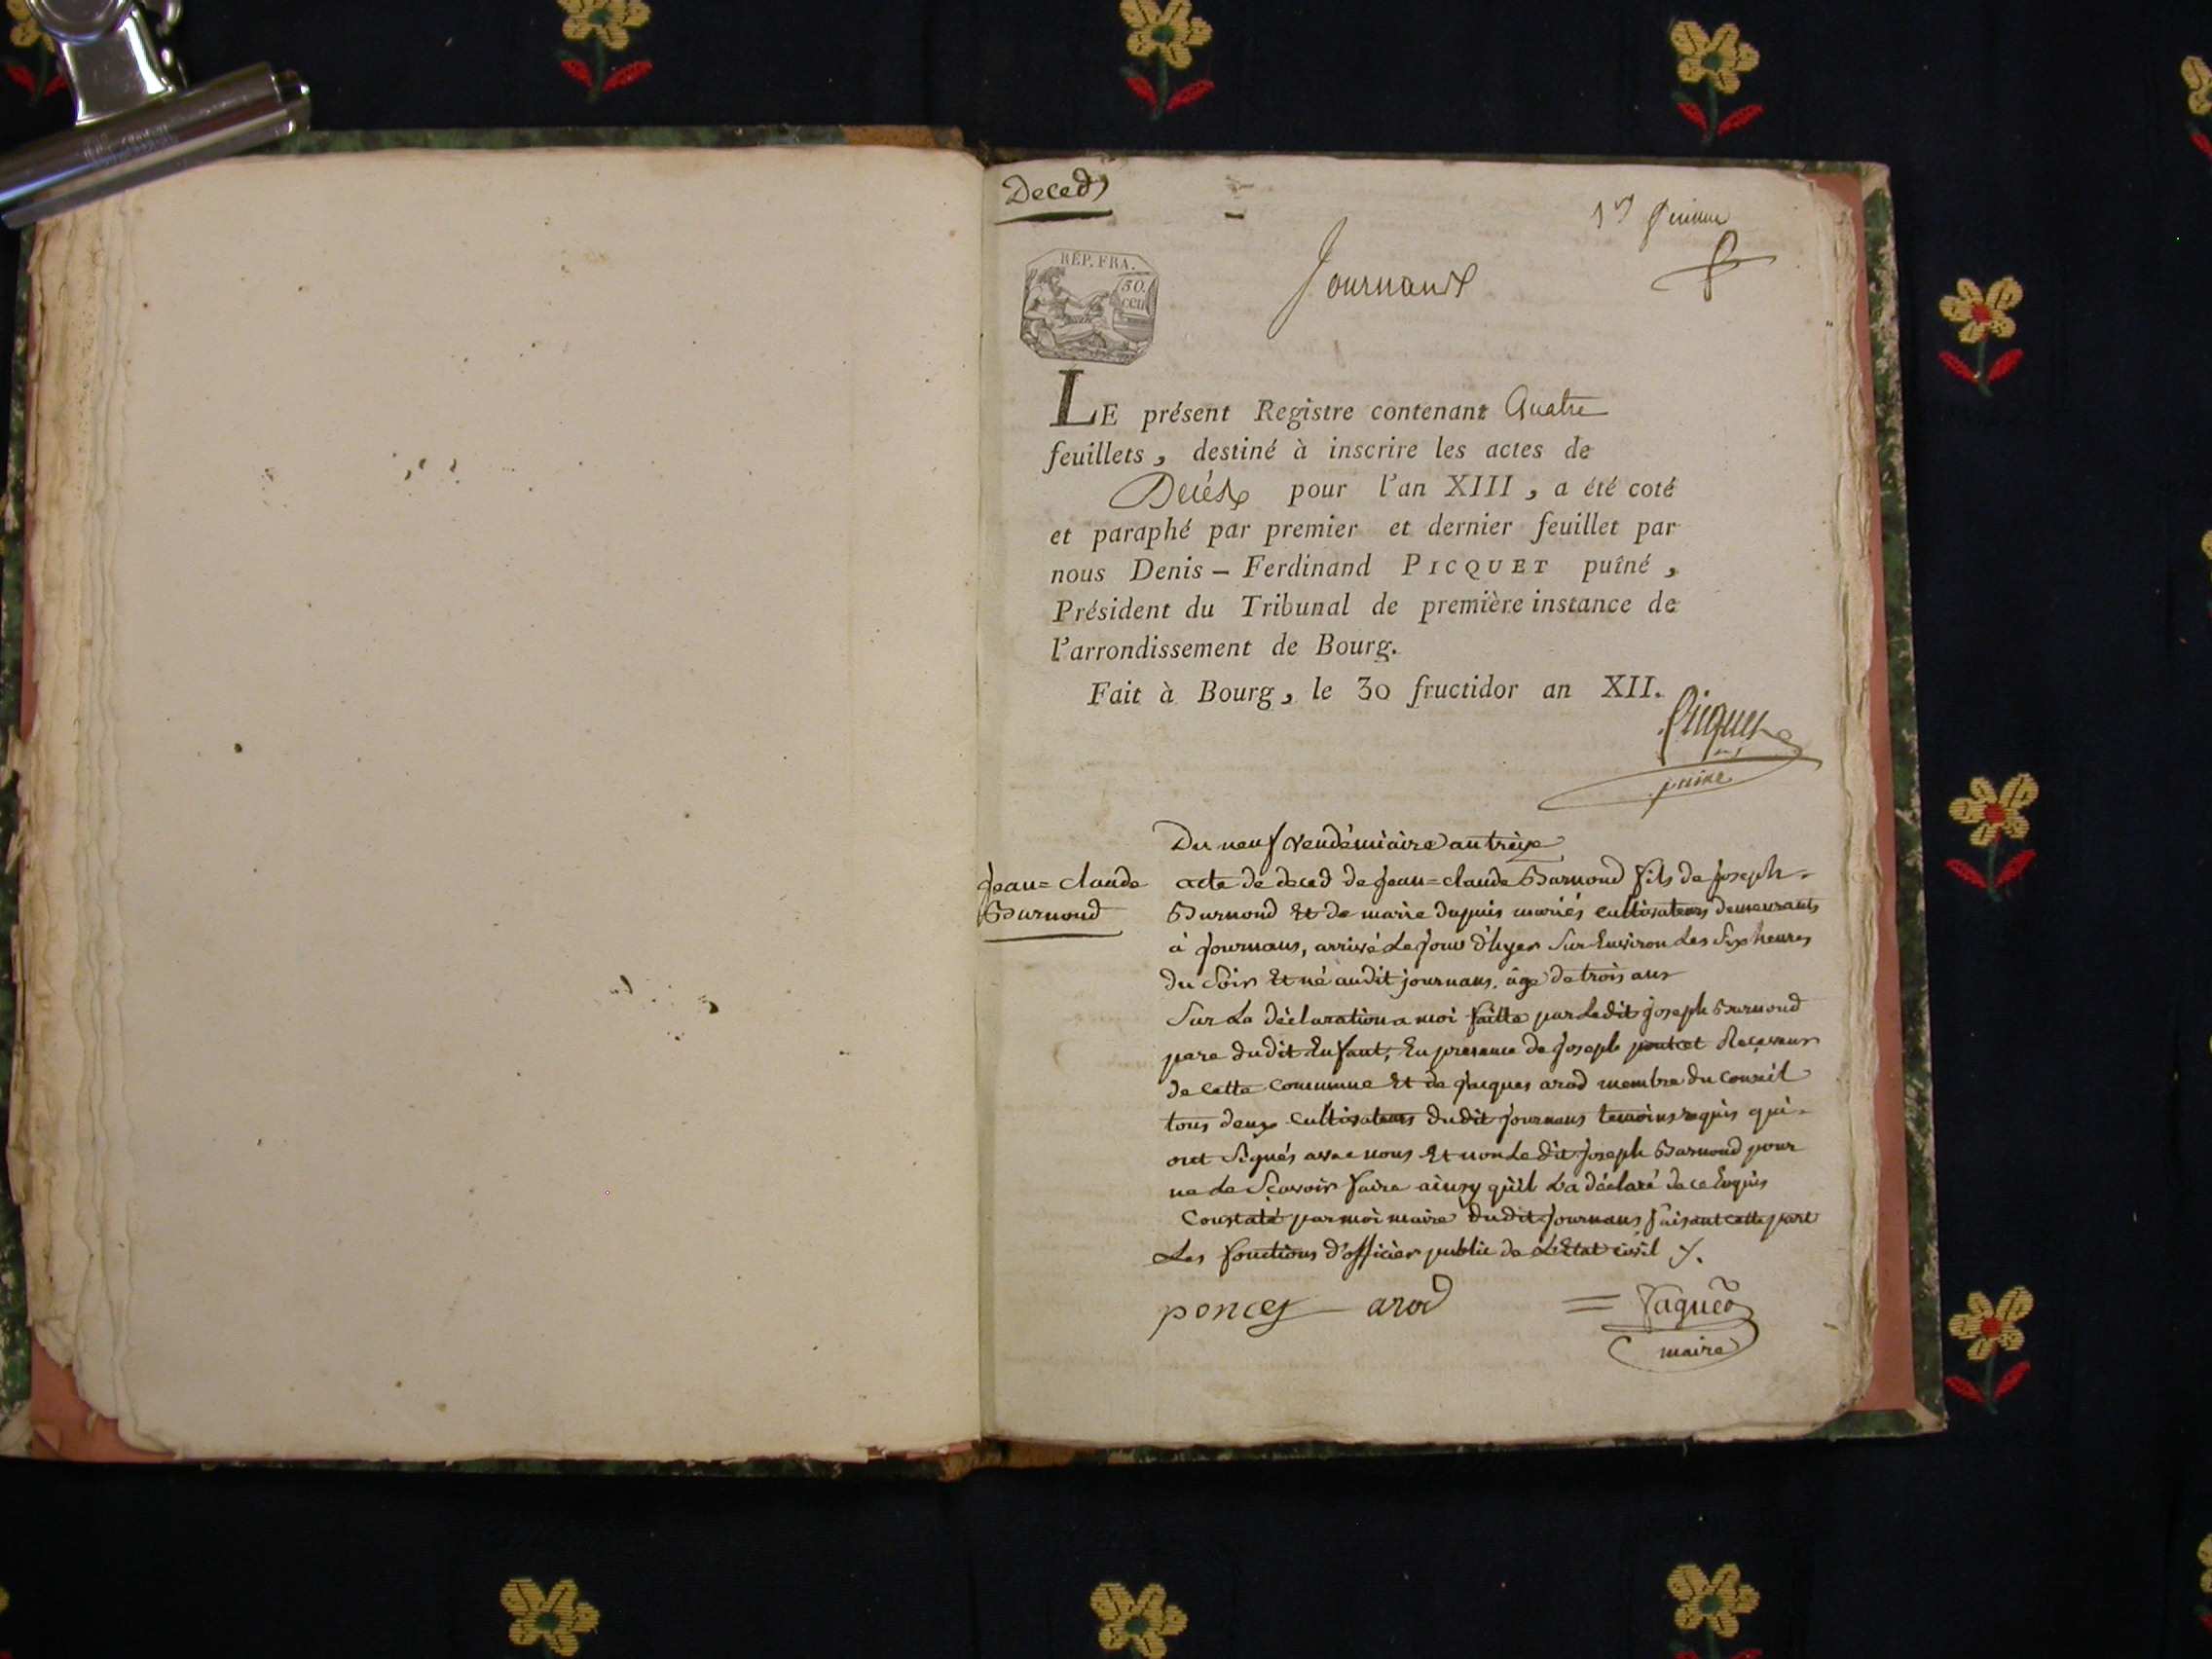 Deced
1er feuillet
RÉP. FRA.
50.
cen
Journans
LE présent Registre contenant Quatre
feuillets, destiné à inscrire les actes de
Décès pour l'an XIII, a été coté
et paraphé par premier et dernier feuillet par
nous Denis-Ferdinand PICQUET puîné,
Président du Tribunal de première instance de
l'arrondissement de Bourg.
Fait à Bourg, le 30 fructidor an XII.
Picquet
puiné
Du neuf vendémiaire an treize
Jean=claude
Burnond
acte de deced de Jean=claude Burnond fils de joseph
Burnond Et de marie dupuis mariés cultivateurs demeurants
à Journans, arrivé Le jour d'hyer Sur Environ Les Six heures
du Soir Et né audit journans, âge de trois ans
Sur La déclaration a moi faitte par Ledit joseph Burnond
pere dudit Enfant, En presence de joseph poncet Receveur
de Cette Commune Et de jacques arod membre du Conseil
tous deux Cultivateurs dudit Journans temoins requis qui
ont Signés avec nous Et non Le dit joseph Burnond pour
ne Le Sçavoir faire ainsy qu'il La déclaré de ce Enquis
Constaté par moi maire dudit Journans faisant cette part
Les fonctions d'officier public de L'Etat civil
poncet arod
maire